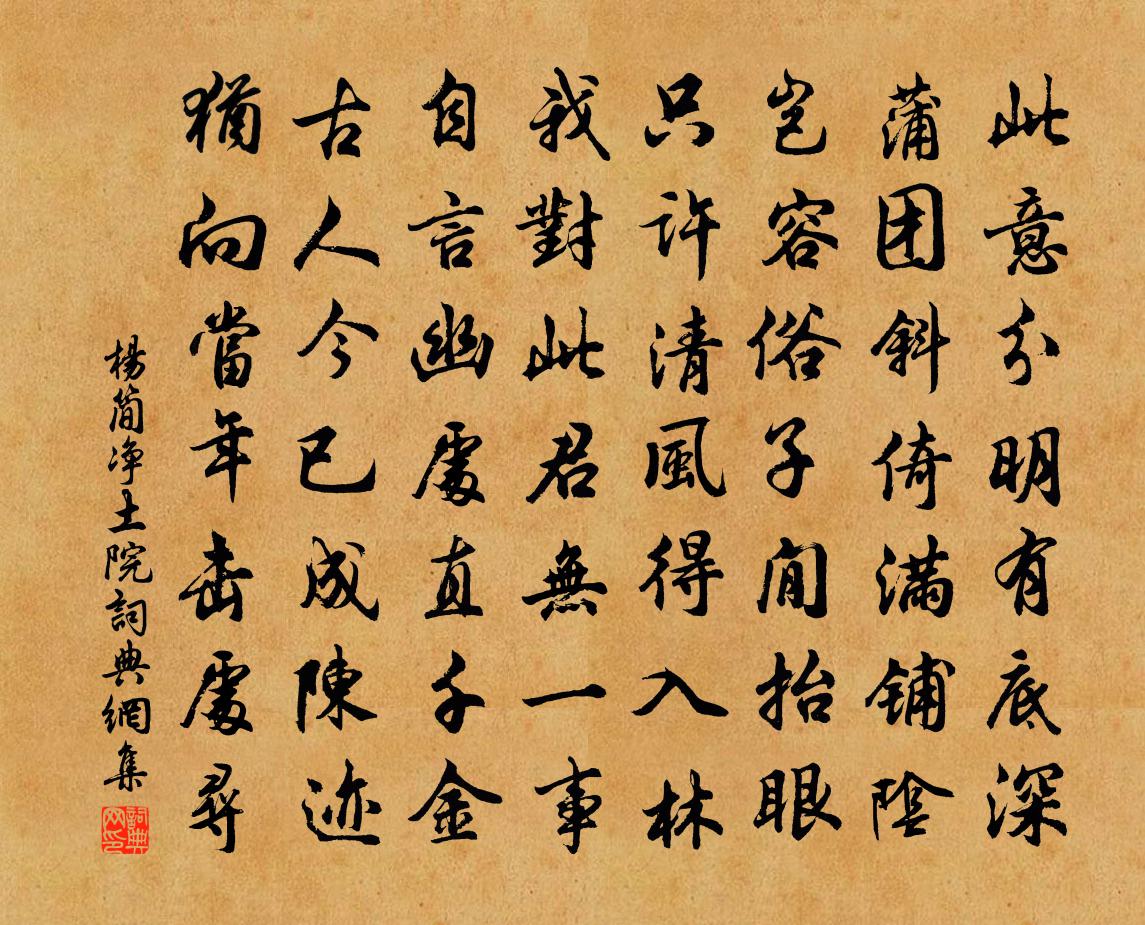 此意分明有底深
蒲团斜倚满铺陰
岂容俗子闲抬眼
只许清風得入林
我對此君無一事
自言幽處直千金
古人今已成陳迹
猶向當年击處尋
楊简净土院詞典網集
詞典网印